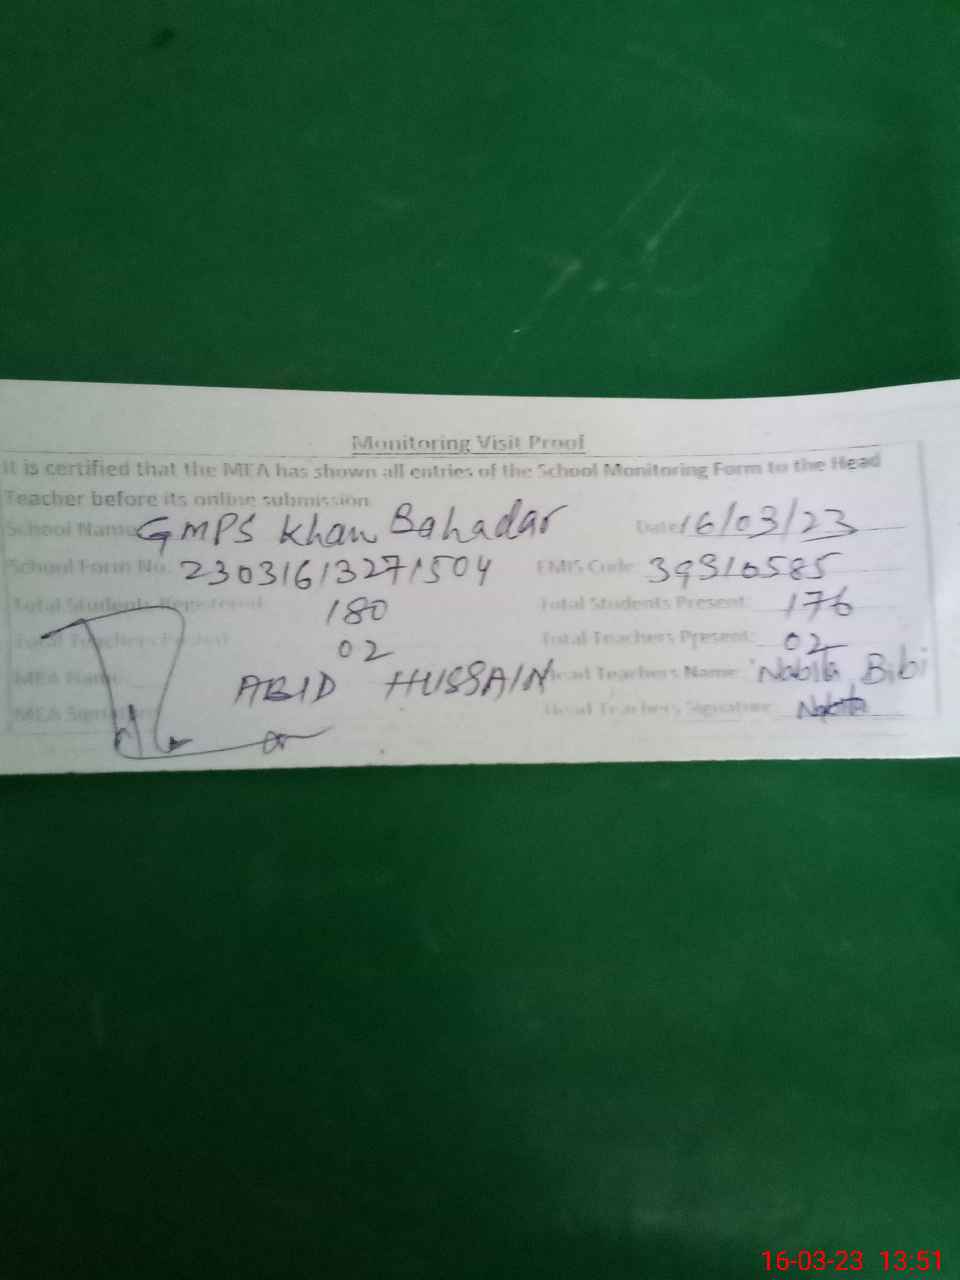 Monitoring Visit Proof
It is certified that the MEA has shown all entries of the School Monitoring Form to the Head
Teacher before its online submission
School Name GMPS Khan Bahadar Date 16/03/23
School Form No. 23031613271504 EMIS Code 39310585
Total Students Registered 180 Total Students Present: 176
Total Teachers 02 Total Teachers Present: 02
MEA Name ABID HUSSAIN Head Teachers Name: Nabila Bibi
MEA Signature Head Teachers Signature:
16-03-23 13:51